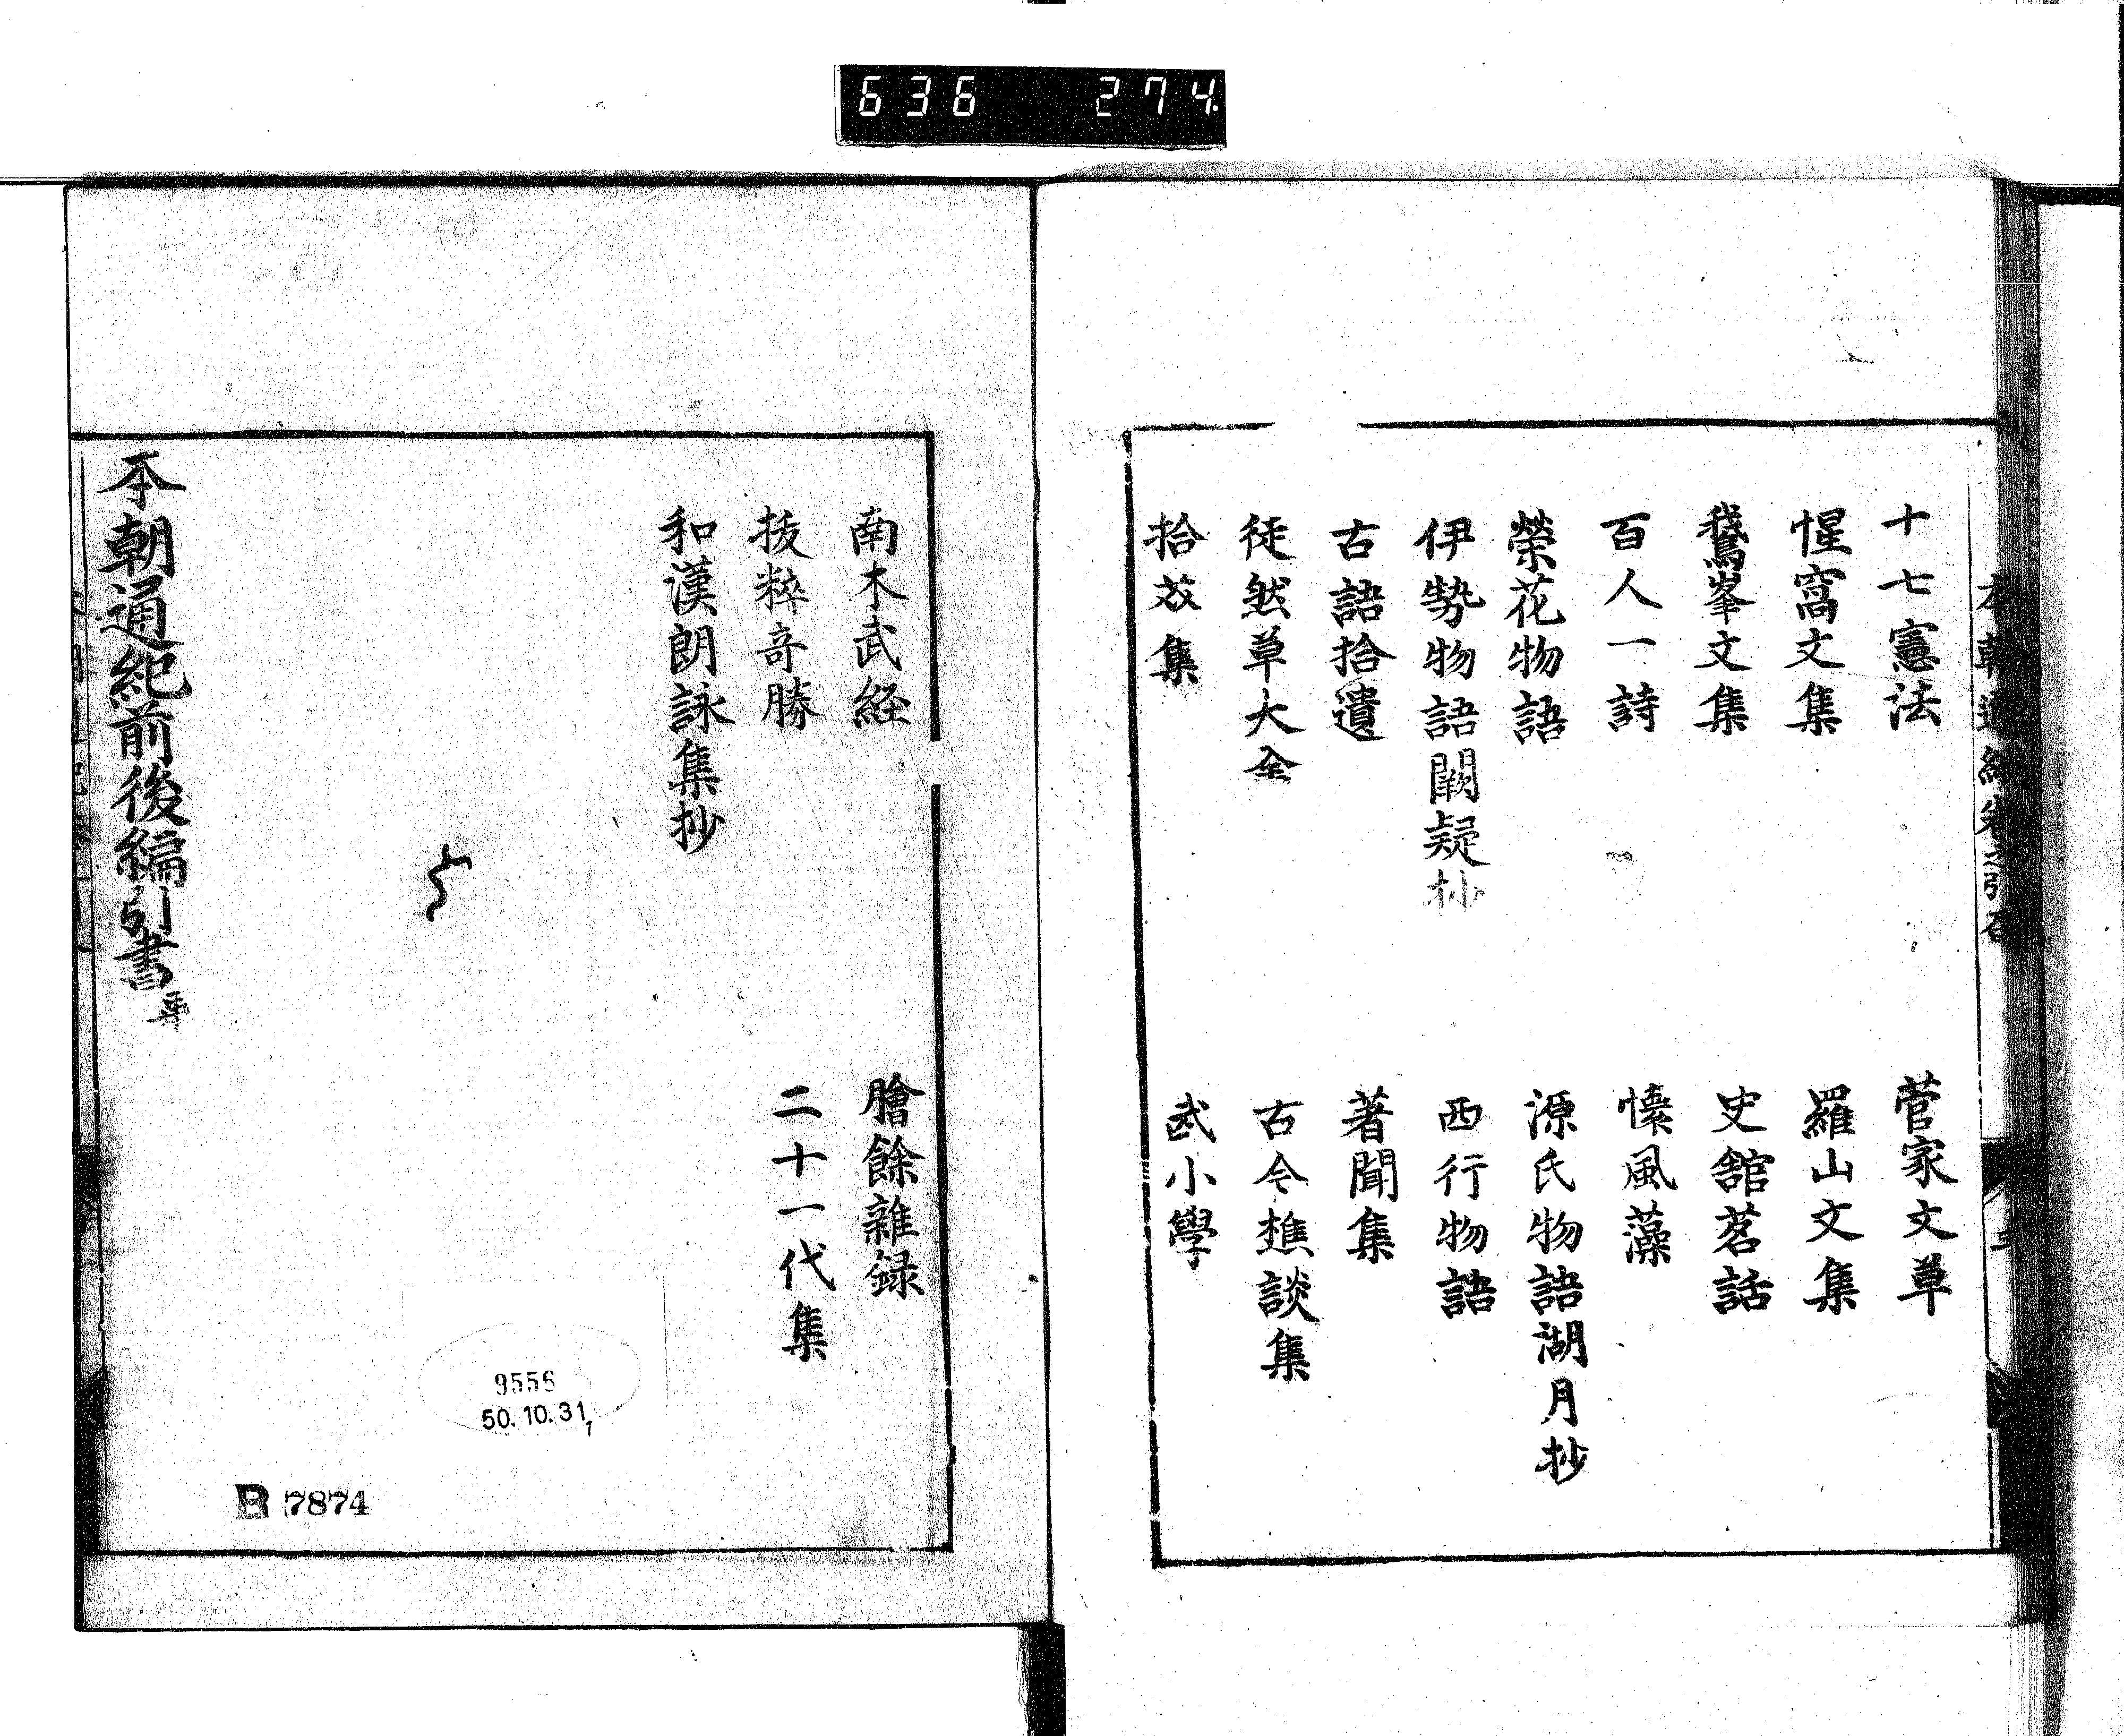 636 274
十七憲法
菅家文草
惺窩文集
羅山文集
鵞峯文集
史舘茗話
百人一詩
懐風藻
榮花物語
源氏物語湖月抄
伊勢物語闕疑抄
西行物語
古語拾遺
著聞集
徒然草大全
古今樵談集
拾芥集
武小學
南木武経
膾餘雜録
抜粹竒勝
二十一代集
和漢朗詠集抄
本朝通紀前後編引書畢
9556
50.10.31
B 7874